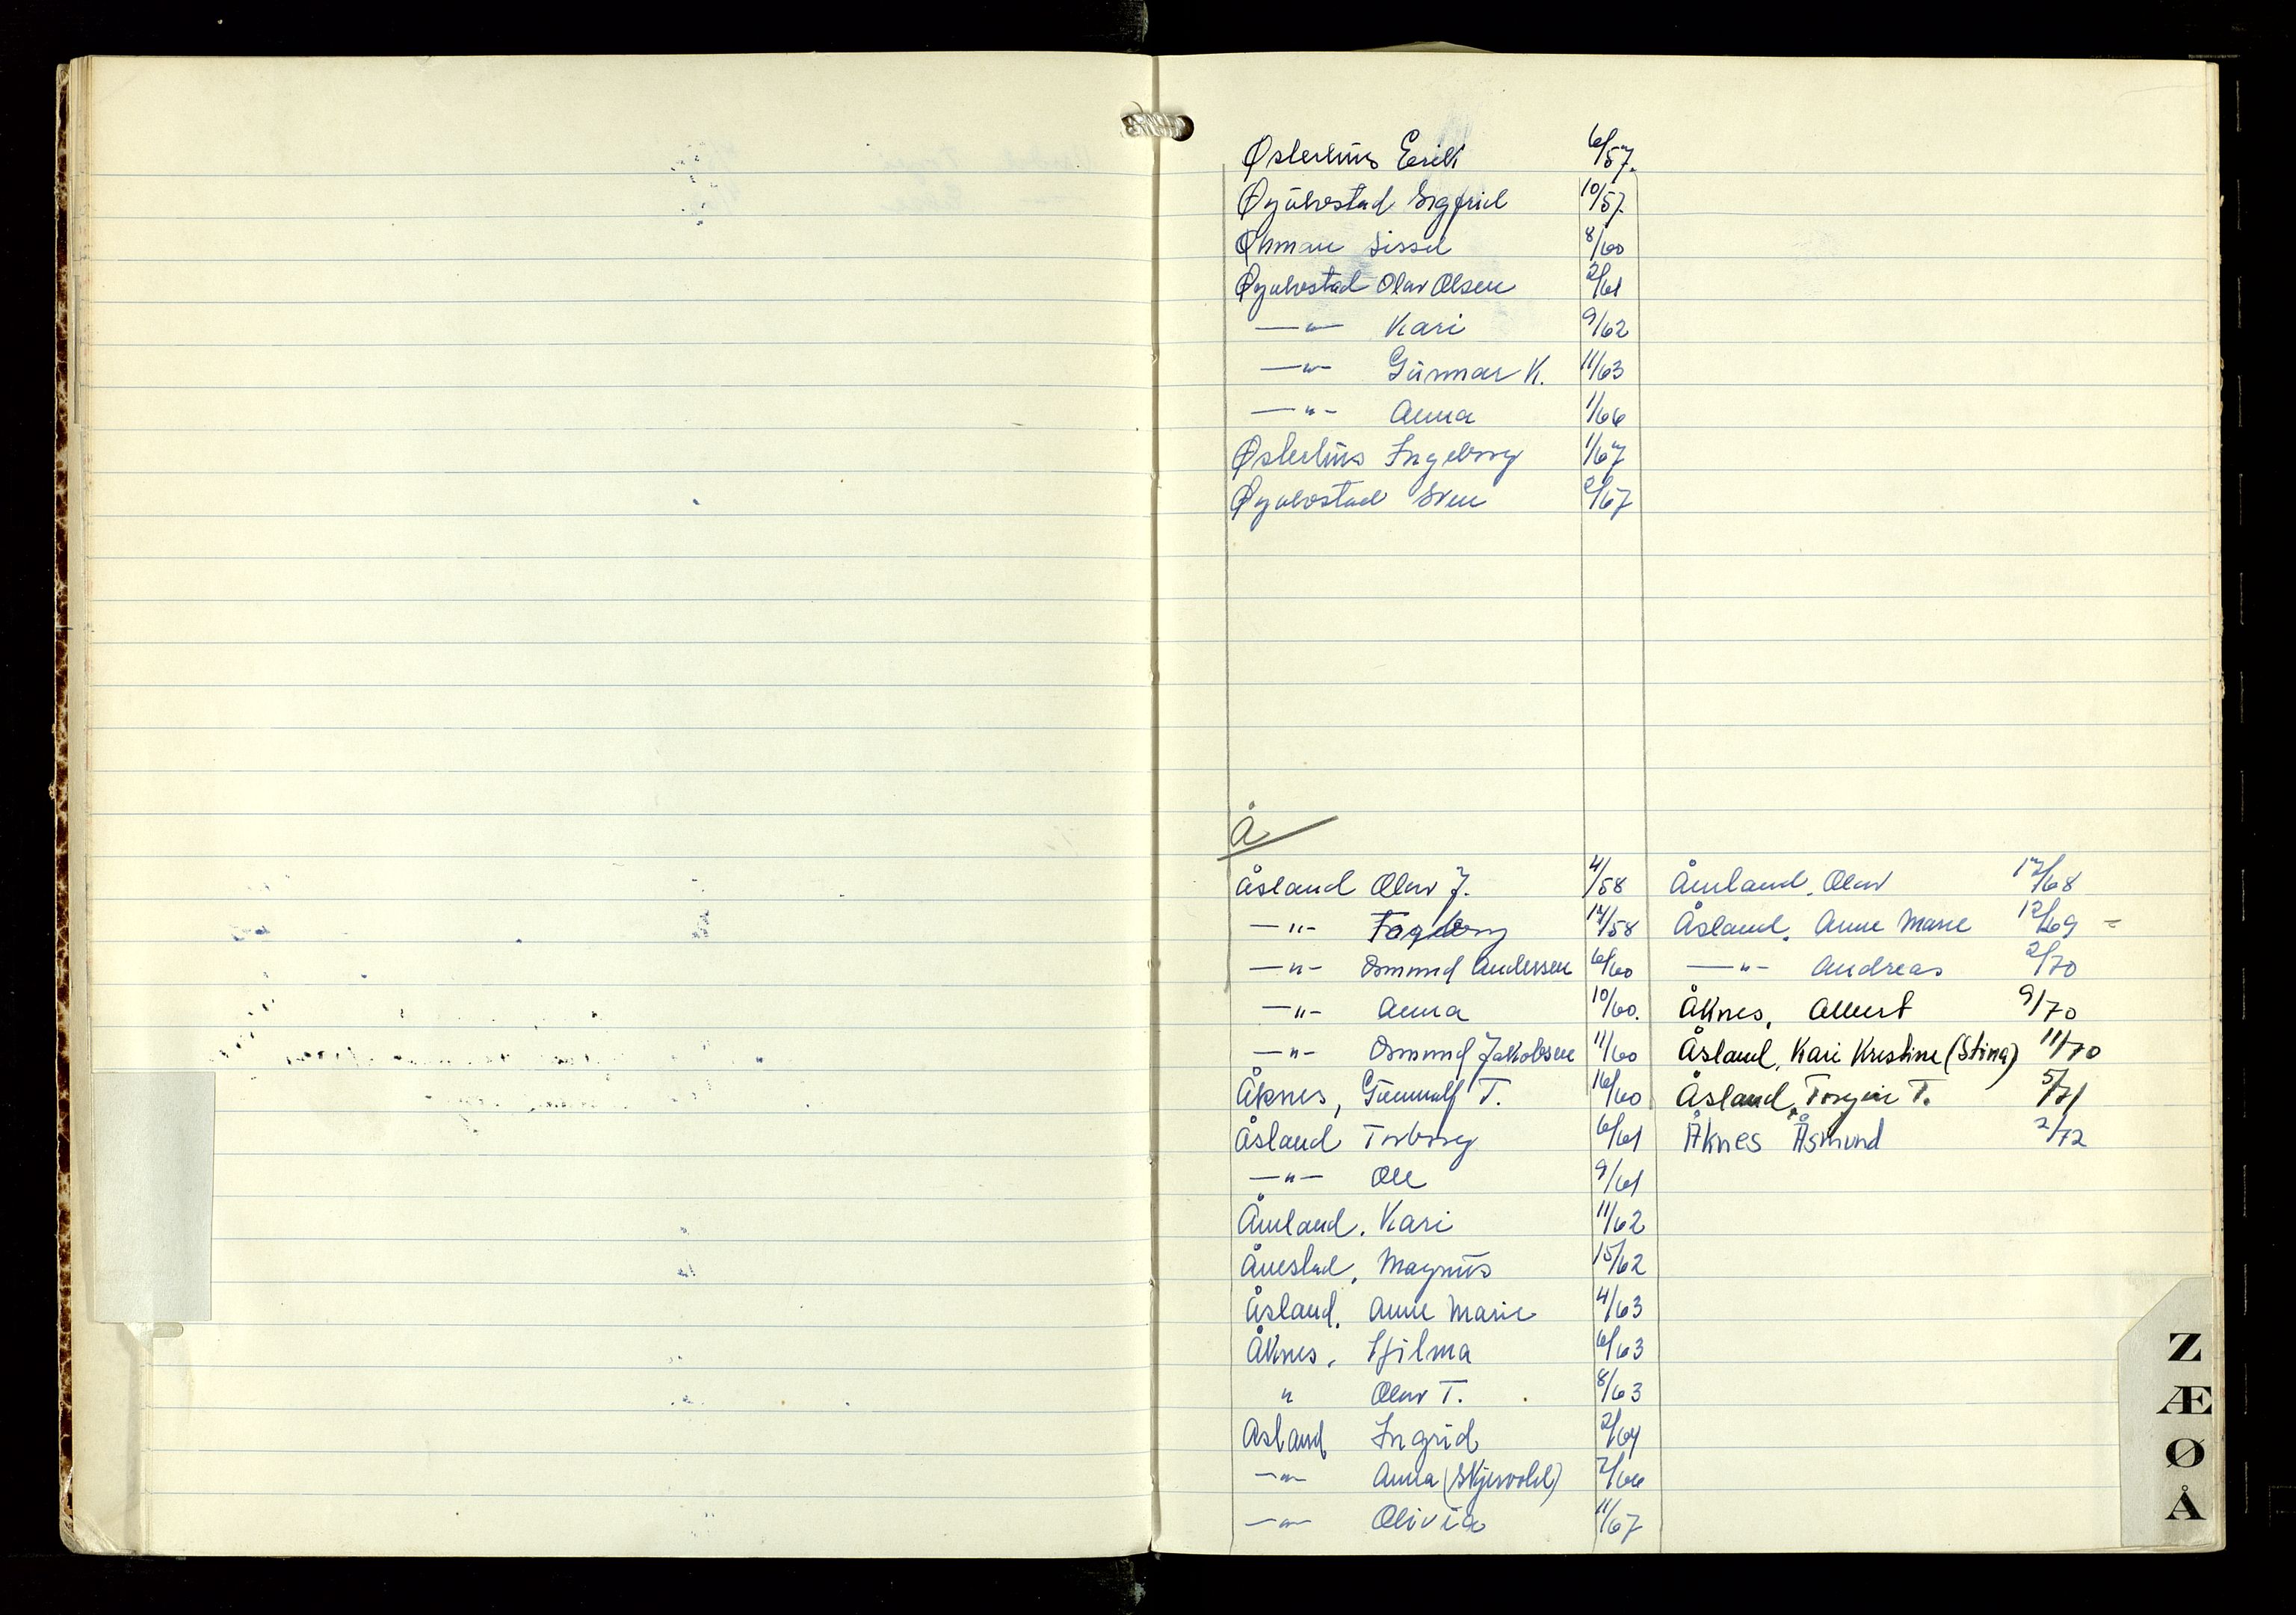 Østerhus Erik 6/57.
Øyulvstad Sigfrid 10/57
Øhman Sissel 8/60
Øyulvstad Olav Olsen 2/61
—"— Kari 9/62
—"— Gunnar K. 11/63
—"— Anna 1/66
Østerhus Ingeborg 1/67
Øyulvstad Sven 2/67
Å
Åsland Olav J. 4/58
—"— 14/58
—"— Osmund Andersen 6/60
—"— Anna 10/60.
—"— Osmund Jakobsen 11/60
Åknes, Gunnulf T. 16/60
Åsland Torborg 6/61
—"— Ole 9/61
Åmland. Kari 11/62
Ånestad, Magnus 15/62
Åsland. Anne Marie 4/63
Åknes, Hilma 6/63
" Olav T. 8/63
Åsland Ingrid 2/64
—"— Anna (Skjevold) 7/66
—"— Olivia 11/67
Åmland. Olav 17/68
Åsland. Anne Marie 12/69 =
—"— Andreas 2/70
Åknes, Albert 9/70
Åsland, Kari Kristine (Stina) 11/70
Åsland, Torgeir T. 5/71
Åknes Åsmund 2/72
Z
Æ
Ø
Å